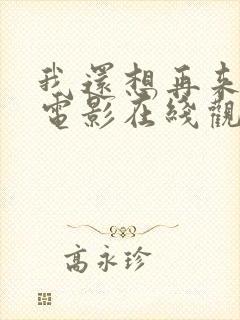 我還想再來
電影在綫觀
高永珍